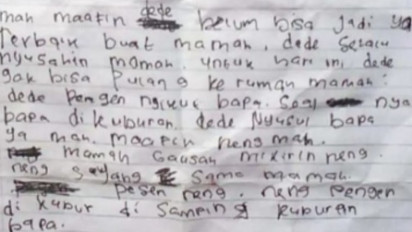 mah maafin dede belum bisa jadi ya
Terbaik buat mamah, dede selalu
nyusahin mamah. untuk hari ini dede
gak bisa pulang ke rumah mamah.
dede pengen ngikut bapa. Soal nya
bapa di kuburan dede nyusul bapa
ya mah. maafin neng mah.
mamah Gausah mikirin neng.
neng sayang sama mamah.
pesen neng. neng pengen
di kubur di samping kuburan
bapa.